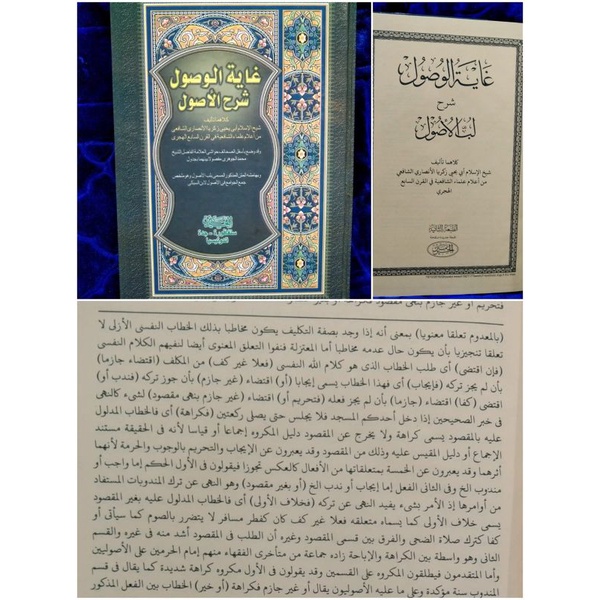 غاية الوصول
شرح الأصول
كلاهما تأليف
شيخ الإسلام أبي يحيى زكريا الأنصاري الشافعي
من أعلام علماء الشافعية في القرن السابع الهجري
وقد وضع بأسفل الصحائف حواشي العلامة الفاضل الشيخ
محمد الجوهري مفصولا بينهما بجدول
جمع الجوامع في الأصول لابن السبكي
الحرمين
سنقافورة - جدة
اندونيسيا
غاية الوصول
شرح
لب الأصول
كلاهما تأليف
شيخ الإسلام أبي يحيى زكريا الأنصاري الشافعي
من أعلام علماء الشافعية في القرن السابع
الهجري
الطبعة الثانية
الحرمين
(بالمعدوم تعلقا معنويا) بمعنى أنه إذا وجد بصفة التكليف يكون مخاطبا بذلك الخطاب النفسى الأزلى لا
تعلقا تنجيزيا بأن يكون حال عدمه مخاطبا أما المعتزلة فنفوا التعلق المعنوى أيضا لنفيهم الكلام النفسى
(فإن اقتضى) أى طلب الخطاب الذى هو كلام الله النفسى (فعلا غير كف) من المكلف (اقتضاء جازما)
بأن لم يجز تركه (فإيجاب) أى فهذا الخطاب يسمى إيجابا (أو) اقتضاء (غير جازم) بأن جوز تركه (فندب أو)
اقتضى (كفا) اقتضاء (جازما) بأن لم يجز فعله (فتحريم أو) اقتضاء (غير جازم بنهى مقصود) لشىء كالنهى
فى خبر الصحيحين إذا دخل أحدكم المسجد فلا يجلس حتى يصلى ركعتين (فكراهة) أى فالخطاب المدلول
عليه بالمقصود يسمى كراهة ولا يخرج عن المقصود دليل المكروه إجماعا أو قياسا لأنه فى الحقيقة مستند
الإجماع أو دليل المقيس عليه وذلك من المقصود وقد يعبرون عن الإيجاب والتحريم بالوجوب والحرمة لأنهما
أثرهما وقد يعبرون عن الخمسة بمتعلقاتها من الأفعال كالعكس تجوزا فيقولون فى الأول الحكم إما واجب أو
مندوب الخ وفى الثانى الفعل إما إيجاب أو ندب الخ (أو بغير مقصود) وهو النهى عن ترك المندوبات المستفاد
من أوامرها إذ الأمر بشىء يفيد النهى عن تركه (فخلاف الأولى) أى فالخطاب المدلول عليه بغير المقصود
يسمى خلاف الأولى كما يسماه متعلقه فعلا غير كف كان كفطر مسافر لا يتضرر بالصوم كما سيأتى أو
كفا كترك صلاة الضحى والفرق بين قسمى المقصود وغيره أن الطلب فى المقصود أشد منه فى غيره والقسم
الثانى وهو واسطة بين الكراهة والإباحة زاده جماعة من متأخرى الفقهاء منهم إمام الحرمين على الأصوليين
وأما المتقدمون فيطلقون المكروه على القسمين وقد يقولون فى الأول مكروه كراهة شديدة كما يقال فى قسم
المندوب سنة مؤكدة وعلى ما عليه الأصوليون يقال أو غير جازم فكراهة (أو خير) الخطاب بين الفعل المذكور